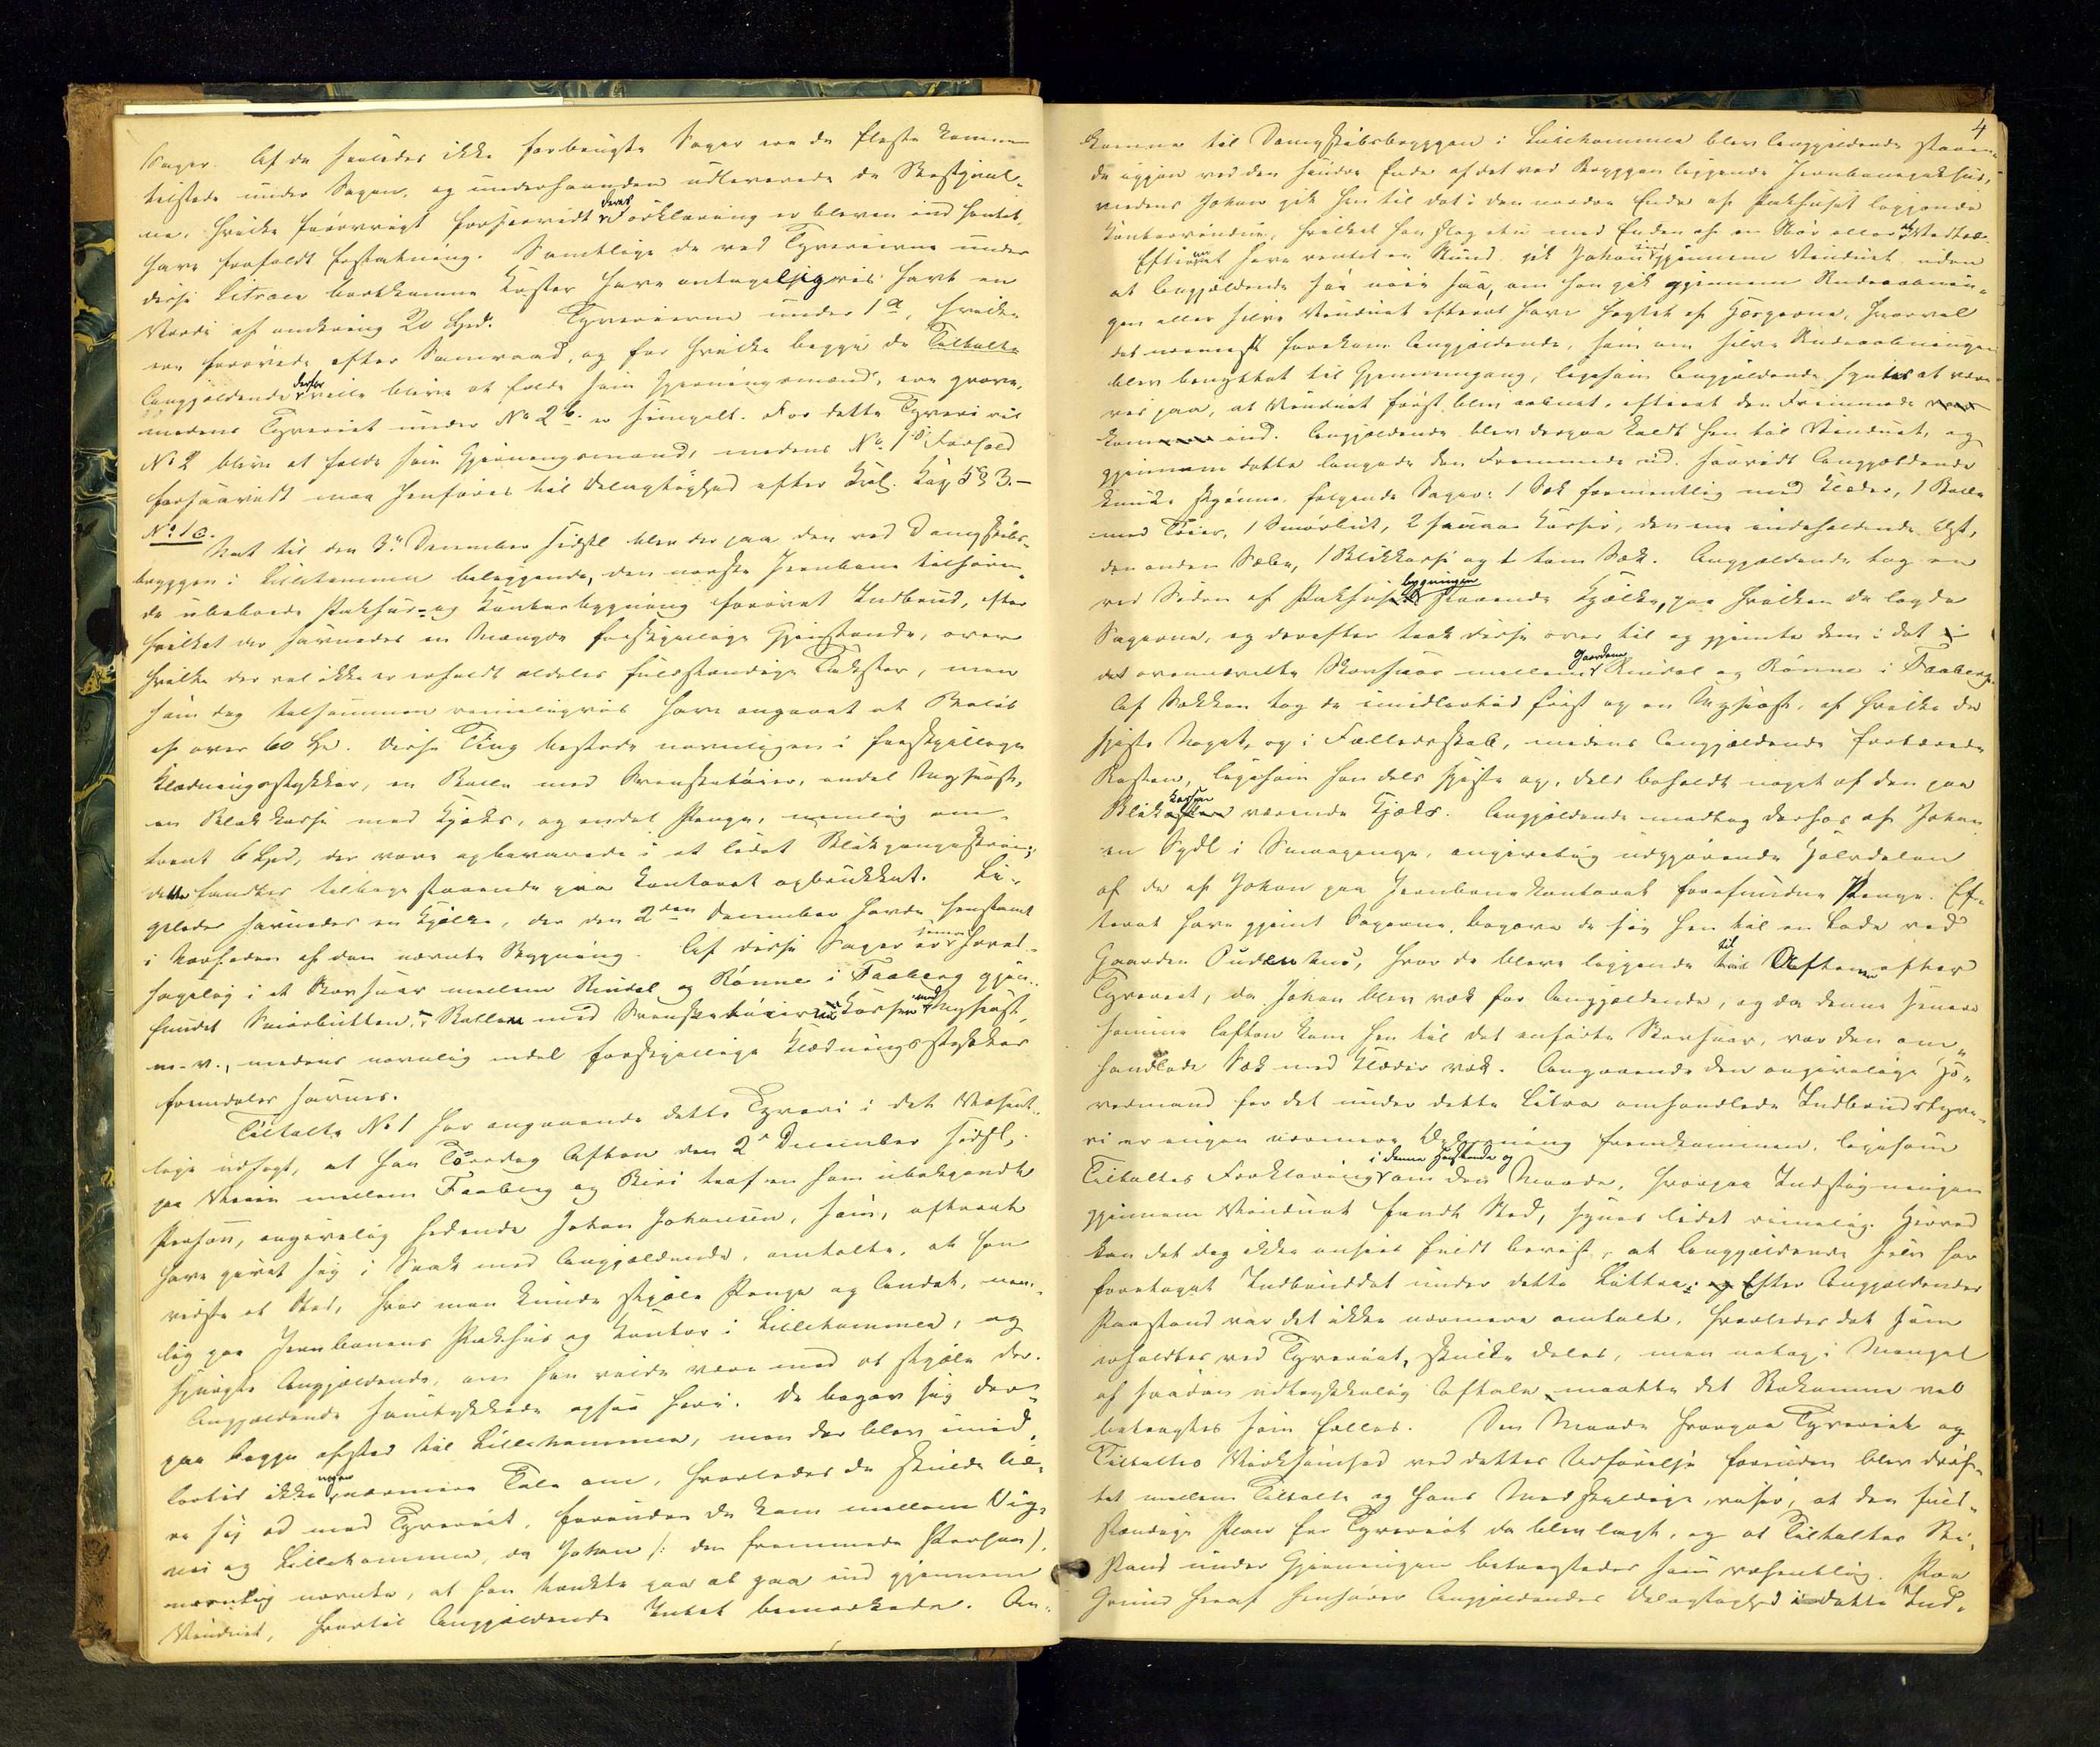 Sager. Af de saaledes ikke forbrugte Sager ere de fleste komne
tilstede under Sagen, og underhaanden udleverede de Bestjaal-
ne, hvilke forøvrigt forsaavidt deres Forklaring er bleven ind hentet,
have frafaldt Erstatning. Samtlige de ved Tyverierne under
disse Litraer bortkomne Koster have antageligvis havt en
Værdi af omkring 20 Spd. Tyverierne under 1 a, hvilke
ere forøvede efter Samraad, og for hvilke begge de Tiltalte
Angjældende derfor ville blive at fælde som Gjerningsmænd, ere grove,
medens Tyveriet under No 2 b. er simpelt. For dette Tyveri vil
No 2 blive at fælde som Gjerningsmand, medens No 1's Forhold
forsaavidt maa henføres til Delagtighed efter Krl. Kap 5 § 3.-
No 1 c.
Nat til den 3die December sidstl. blev der paa den ved Dampskibs-
bryggen i Lillehammer beliggende, den norske Jernbane tilhøren-
de ubeboede Pakhus- og Kontorbygning forøvet Indbrud, efter
hvilket der savnedes en Mængde forskjellige Gjenstande, over
hvilke der vel ikke er erholdt aldeles fuldstændige Takster, men
som dog tilsammen rimeligvis have angaaet et Beløb
af over 60 Spd. Disse Ting bestode navnligen i forskjellige
Klædningsstykker, en Balle med Svenskatøier, endel Mysost,
en Blikkasse med Kjæks, og endel Penge, nemlig om-
trent 6 Spd, der vare opbevarede i et lidet Blikpengeskrin;
dette fandtes tilbage staaende paa Kontoret opbrukket. Li-
geledes savnedes en Kjælke, der den 2den December havde henstaaet
i Nærheden af den nævnte Bygning. Af disse Sager er senere hoved-
sagelig i et Kornhuus mellem Rindal og Rønne i Faaberg gjen-
fundet Smørbutten, Ballen med Svensketøier, en Kasse med Mysost,
m. v., medens navnlig endel forskjellige Klædningsstykker
fremdeles savnes.
Tiltalte No 1 har angaaende dette Tyveri i det Væsent-
lige udsagt, at han Torsdag Aften den 2den December sidstl,
paa Veien mellem Faaberg og Biri traf en ham ubekjendt
Person, angivelig hedende Johan Johansen, som, efterat
have givet sig i Snak med Angjældende, omtalte, at han
vidste et Sted, hvor man kunde stjæle Penge og Andet, nem-
lig paa Jernbanens Pakhus og Kontor i Lillehammer, og
spurgte Angjældende, om han vilde være med at stjæle der.
Angjældende samtykkede ogsaa heri. De begav sig der-
paa begge afsted til Lillehammer, men der blev imid-
lertid ikke nogen nærmere Tale om, hvorledes de skulde bæ-
re sig ad med Tyveriet, forinden de kom mellem Vig-
nes og Lillehammer, da Johan (: den fremmede Person),
nemlig nævnte, at han tænkte paa at gaa ind gjennem
Vinduet, hvortil Angjældende Intet bemærkede. An-
4
komne til Dampskibsbryggen i Lillehammer blev Angjældende staaen-
de igjen ved den søndre Ende af det ved Bryggen liggende Jernbanepakhus,
medens Johan gik hen til det i den nordre Ende af Pakhuset liggende
Kontorvindue, hvilket han slog itu med Enden af en Stør eller et Vedtræ.
Efterat have ventet en Stund gik Johan ind gjennem Vinduet uden
at Angjældende saa nøie saa, om han gik gjennem Rudeaabnin-
gen eller selve Vinduet efterat have hægtet af Hægterne, hvorvel
det nærmest forekom Angjældende, som om selve Rudeaabningen
blev benyttet til Gjennemgang, ligesom Angjældende syntes at være
vis paa, at Vinduet først blev aabnet, efterat den Fremmede
kom ind. Angjældende blev derpaa kaldt hen til Vinduet, og
gjennem dette langede den Fremmede ud, saavidt Angjældende
kunde skjønne, følgende Sager: 1 Sæk formentlig med Klæder, 1 Balle
med Tøier, 1 Smørbut, 2 smaae Kasser, den ene indeholdende Ost,
den anden Sæbe, 1 Blikkasse og 1 tom Sæk. Angjældende tog en
ved Siden af Pakhusbygningen staaende Kjælke, paa hvilken de lagde
Sagerne, og derefter trak disse over til og gjemte dem i det
det ovennævnte Kornhuus mellem Gaardene Rindal og Rønne i Faaberg.
Af Sækken tog de imidlertid først op en Mysost, af hvilke de
spiste Noget, og i Fælledsskab, medens Angjældende fortærede
Resten, ligesom han dels spiste op, dels beholdt noget af den paa
Blikkassen værende Kjæks. Angjældende modtog derhos af Johan
en Sydl i Smaapenge, angivelig udgjørende Halvdelen
af de af Johan paa Jernbane Kontoret forefundne Penge. Ef-
terat have gjemt Sagerne, begave de sig hen til en Lade ved
Gaarden, hvor de bleve liggende til Aftenen efter
Tyveriet, da Johan blev væk for Angjældende, og da denne senere
samme Aften kom hen til det anførte Kornhuus, var den om-
handlede Sæk med Klæder væk. Angaaende den angivelige Ho-
vedmand for det under dette Litra omhandlede Indbrudstyve-
ri er ingen nærmere Oplysning fremkommen, ligesom
Tiltaltes Forklaring i denne Henseende og om den Maade, hvorpaa Indstigningen
gjennem Vinduet fandt Sted, synes lidet rimelig. Herved
kan det dog ikke ansees fuldt bevist, at Angjældende selv har
foretaget Indbruddet under dette Littra. Efter Angjældendes
Paastand var det ikke nærmere omtalt, hvorledes det som
erholdtes ved Tyveriet, skulde deles, men netop i Mangel
af saadan udtrykkelig Aftale maatte det Bekomne vel
betragtes som fælles. Den Maade hvorpaa Tyveriet og
Tiltaltes Virksomhed ved dettes Udførelse forinden blev drøf-
tet mellem Tiltalte og hans Medskyldige, viser, at den fuld-
stændige Plan for Tyveriet da blev lagt, og at Tiltaltes Bi-
stand under Gjerningen betragtedes som væsentlig. Paa
Grund heraf henfører Angjældendes Delagtighed i dette Ind-